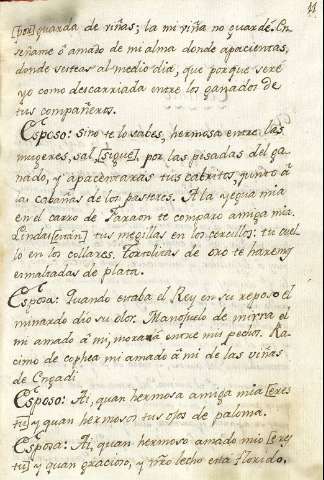 11
[por] guarda de viñas; la mi viña no guardé. En
señame ô amado de mi alma donde apacientas,
donde sesteas al medio dia, que porque seré
yo como descarriada entre los ganados de
tus compañeros.
Esposo: Sino te lo sabes, hermosa entre las
mugeres, sal [sigue], por las pisadas del ga-
nado, y apacentaras tus cabritos, junto â
las cabañas de los pastores. A la yegua mia
en el carro de Faraon te comparo amiga mia.
Lindas [están] tus megillas en los cercillos: tu cue
llo en los collares. Tortolicas de oro te haremos
esmaltadas de plata.
Esposa: Quando estaba el Rey en su reposo el
mi nardo dio su olor. Manojuelo de mirra el
mi amado â mi, morará entre mis pechos. Ra-
cimo de cophea mi amado â mi de las viñas
de Engadi
Esposo: Ai, quan hermosa amiga mia [eres
tu] y quan hermosos tus ojos de paloma.
Esposa: Ai, quan hermoso amado mio [eres
tu] y quan gracioso, y nŕo lecho esta florido.